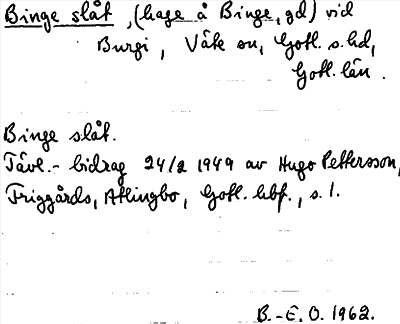 Binge slåt, (hage å Binge, gd) vid
Burgi, Väte sn, Gotl. s. hd,
Gotl. län.
Binge slåt.
Tävl.- bidrag 24/2 1949 av Hugo Pettersson,
Friggårds, Atlingbo, Gotl. hbf., s. 1.
B.-E. O. 1962.